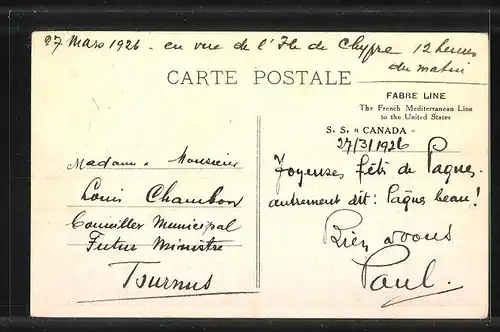 27 Mars 1926 - en vue de l'Ile de Chypre 12 heures
du matin
CARTE POSTALE
FABRE LINE
The French Mediterranean Line
to the United States
S. S. « CANADA »
27/3/1926
Madame. Monsieur
Louis Chambon
Conseiller Municipal
Futur Ministre
Tournus
Joyeuses fêts de Paques.
autrement dit: Pâques beau!
Bien à vous
Paul.